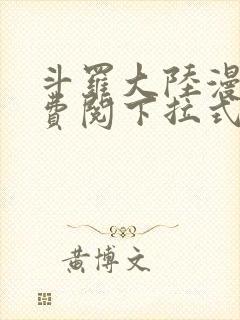 斗羅大陸漫
費閱下拉式
黃博文